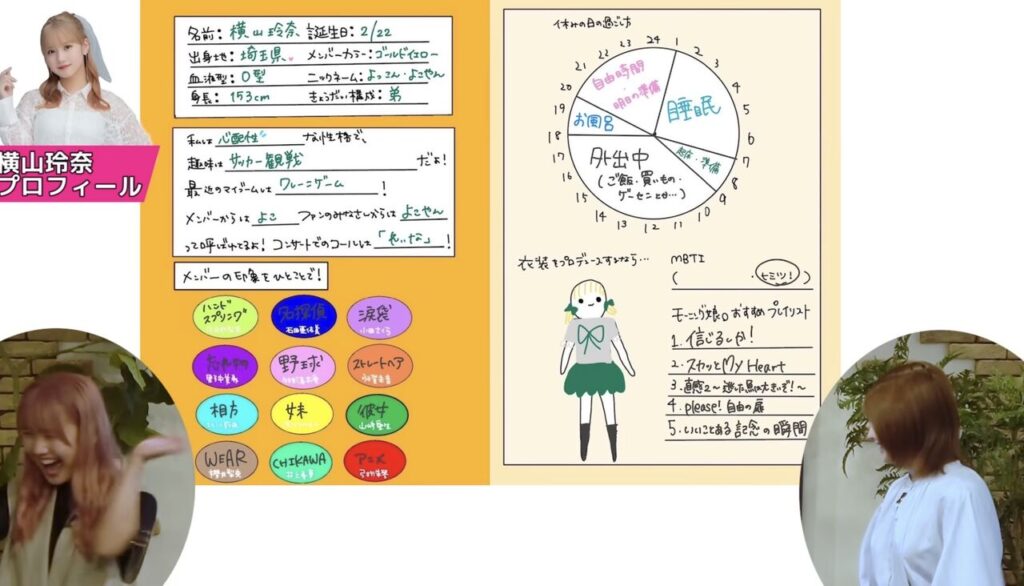 横山玲奈
プロフィール
名前: 横山玲奈 誕生日: 2/22
出身地: 埼玉県 メンバーカラー: ゴールドイエロー
血液型: O型 ニックネーム: よっこん・よこやん
身長: 153cm きょうだい構成: 弟
私は 心配性 な性格で、
趣味は サッカー観戦 だよ!
最近のマイブームは クレーンゲーム !
メンバーからは よこ ファンのみなさんからは よこやん
って呼ばれてるよ! コンサートでのコールは 「れいな」 !
メンバーの印象をひとことで!
ハンドスプリング
名探偵
石田亜佑美
涙袋
小田さくら
野中美希
野球
ストレートヘア
相方
妹
彼女
山﨑愛生
WEAR
櫻井梨央
CHIKAWA
アニメ
休みの日の過ごし方
24 1 2 3 4 5 6 7 8 9 10 11 12 13 14 15 16 17 18 19 20 21 22 23
自由時間
・明日の準備
睡眠
お風呂
・準備
外出中
(ご飯・買いもの・
ゲーセンとか…)
衣装をプロデュースするなら…
MBTI
( ・ヒミツ!)
モーニング娘。おすすめプレイリスト
1. 信じるしか!
2. スカッとMy Heart
3. 直感2 〜逃した魚は大きいぞ!〜
4. please! 自由の扉
5. いいことある記念の瞬間